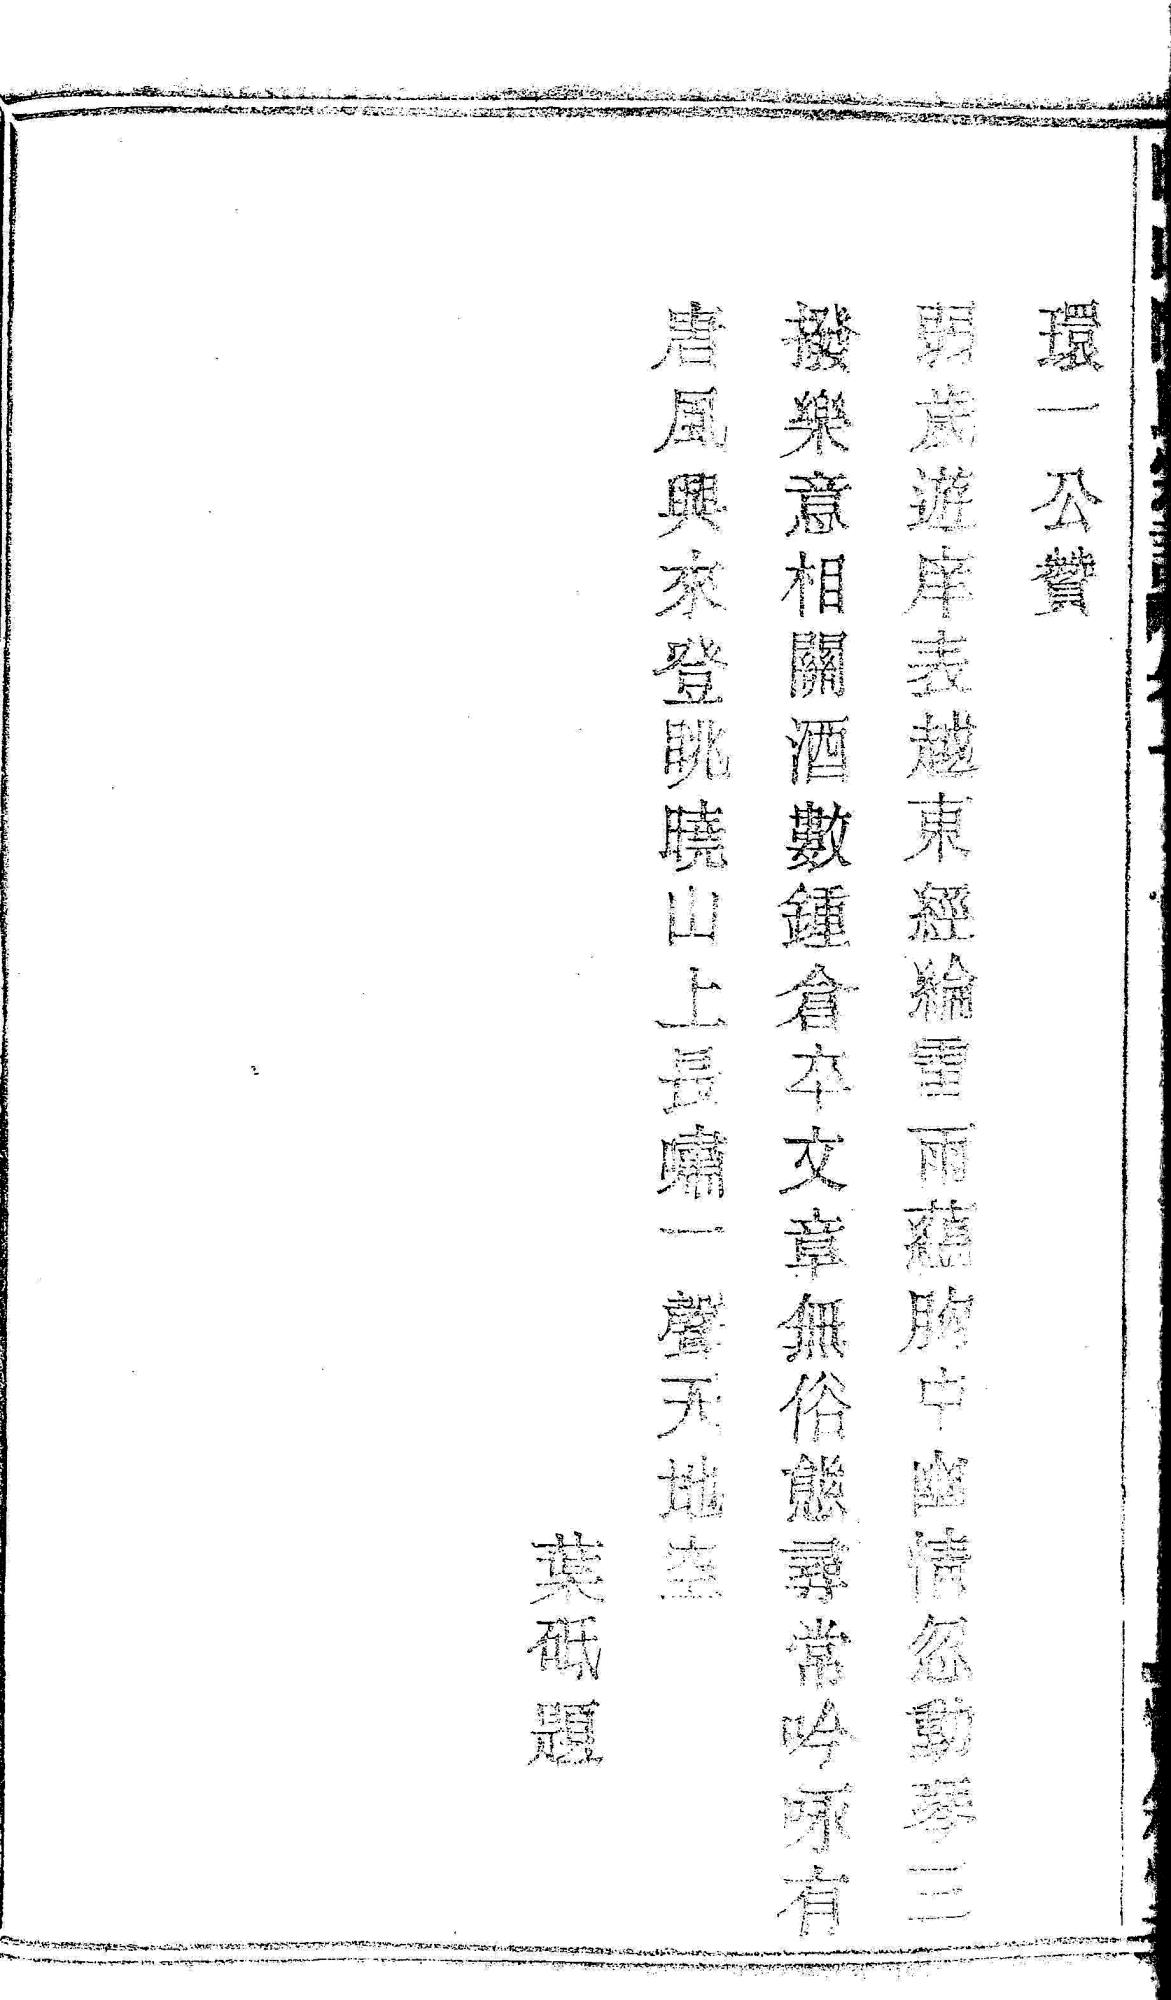 環一公贊
弱歲遊庠表越東經綸雷雨蘊胸中幽情忽動琴三
撥樂意相關酒數鍾倉卒文章無俗態尋常吟咏有
唐風興來登眺曉山上長嘯一聲天地空
葉砥題